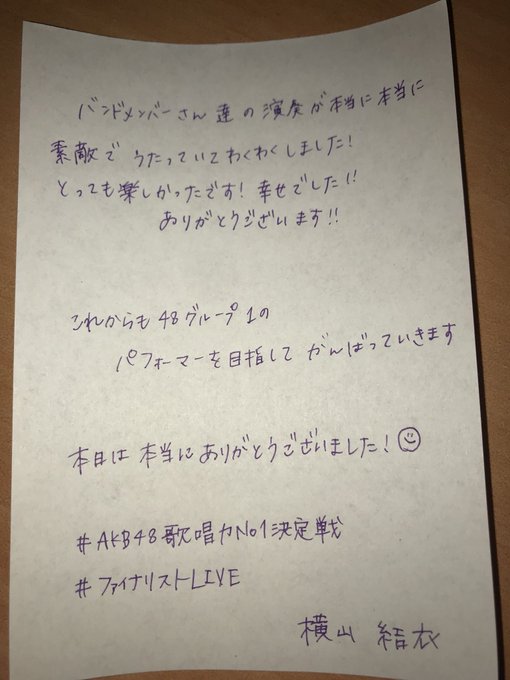 バンドメンバーさん達の演奏が本当に本当に
素敵でうたっていてわくわくしました!
とっても楽しかったです!幸せでした!!
ありがとうございます!!
これからも48グループ1の
パフォーマーを目指してがんばっていきます
本日は本当にありがとうございました!
#AKB48歌唱力No1決定戦
#ファイナリストLIVE
横山 結衣